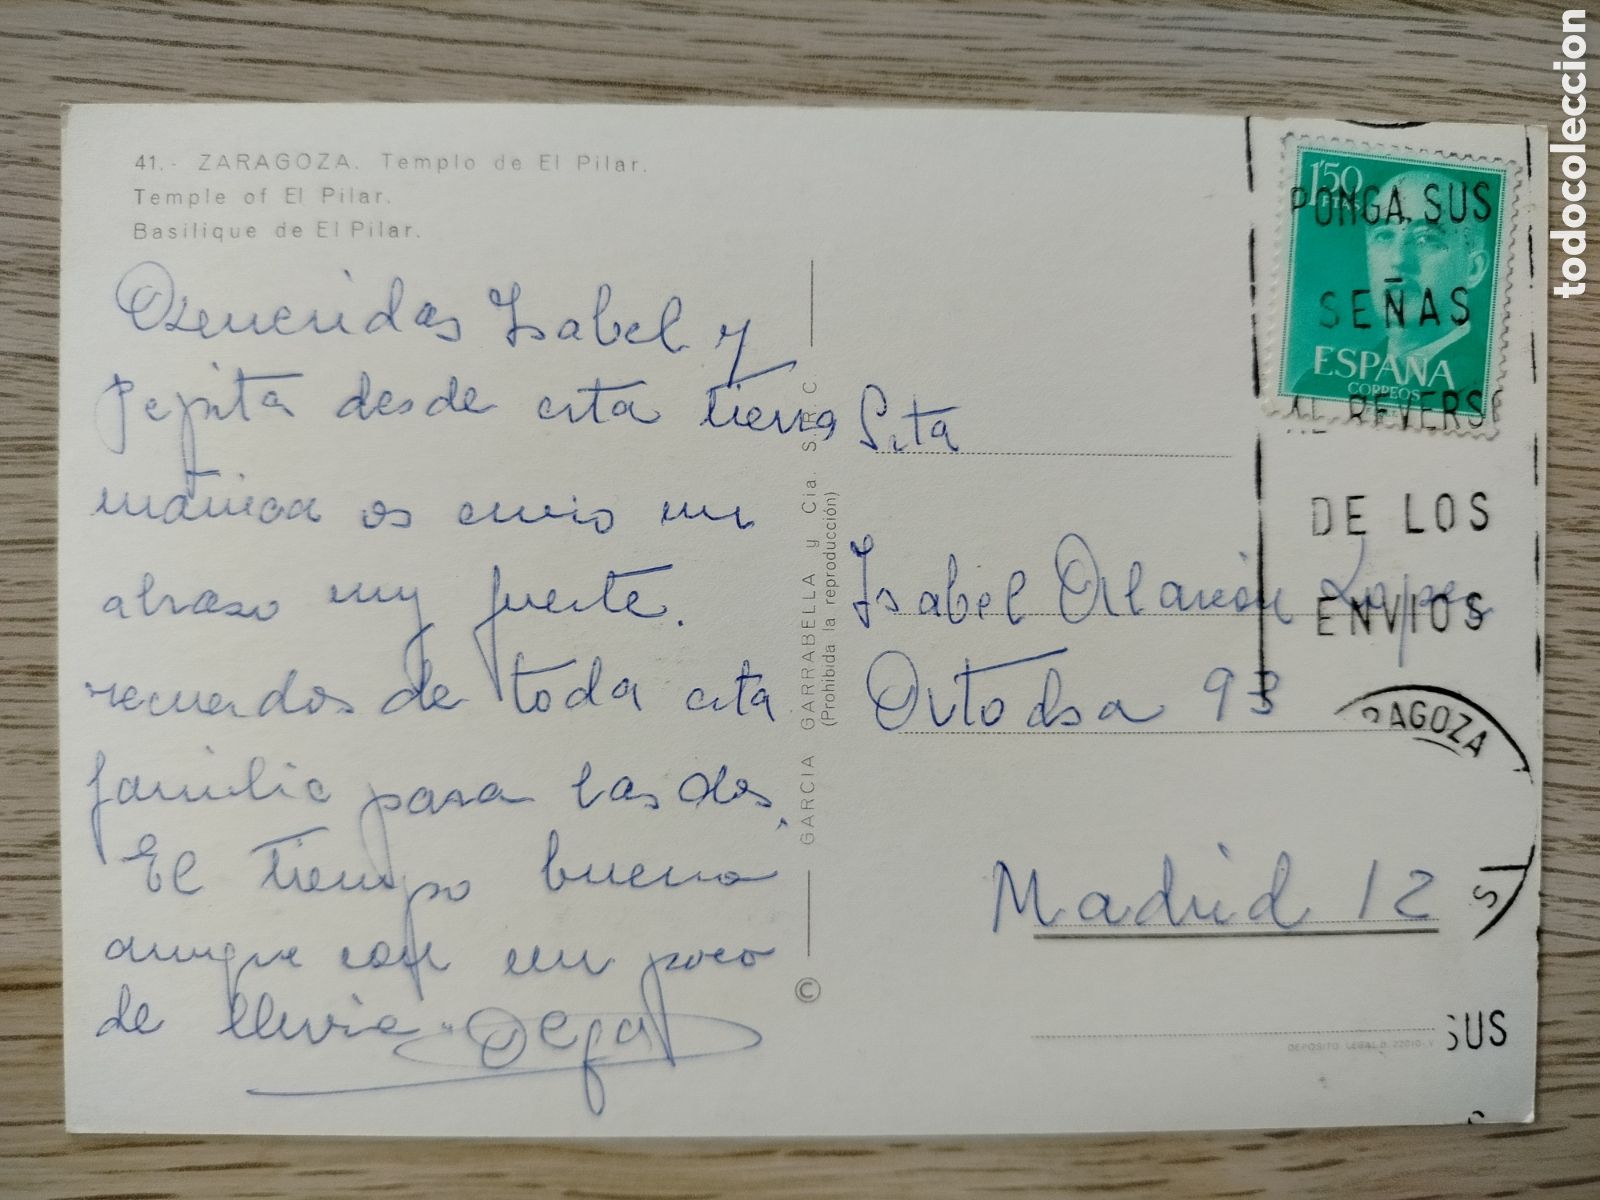 41.- ZARAGOZA. Templo de El Pilar.
Temple of El Pilar.
Basilique de El Pilar.
Queneridas Isabel y
Pepita desde esta tierra
mánica os envio un
abrazo muy fuerte.
recuerdos de toda esta
familia para las dos.
El tiempo bueno
aunque con un poco
de lluvia. Olga
GARCIA GARRABELLA y Cia. S.R.C
(Prohibida la reproducción)
©
Srta
Isabel Alarcón Lopez
93
Madrid 12
DEPOSITO LEGAL B. 22010-V
1'50
PTAS
ESPAÑA
CORREOS
PONGA SUS
SEÑAS
AL REVERS
DE LOS
ENVIOS
RAGOZA
SUS
todocoleccion